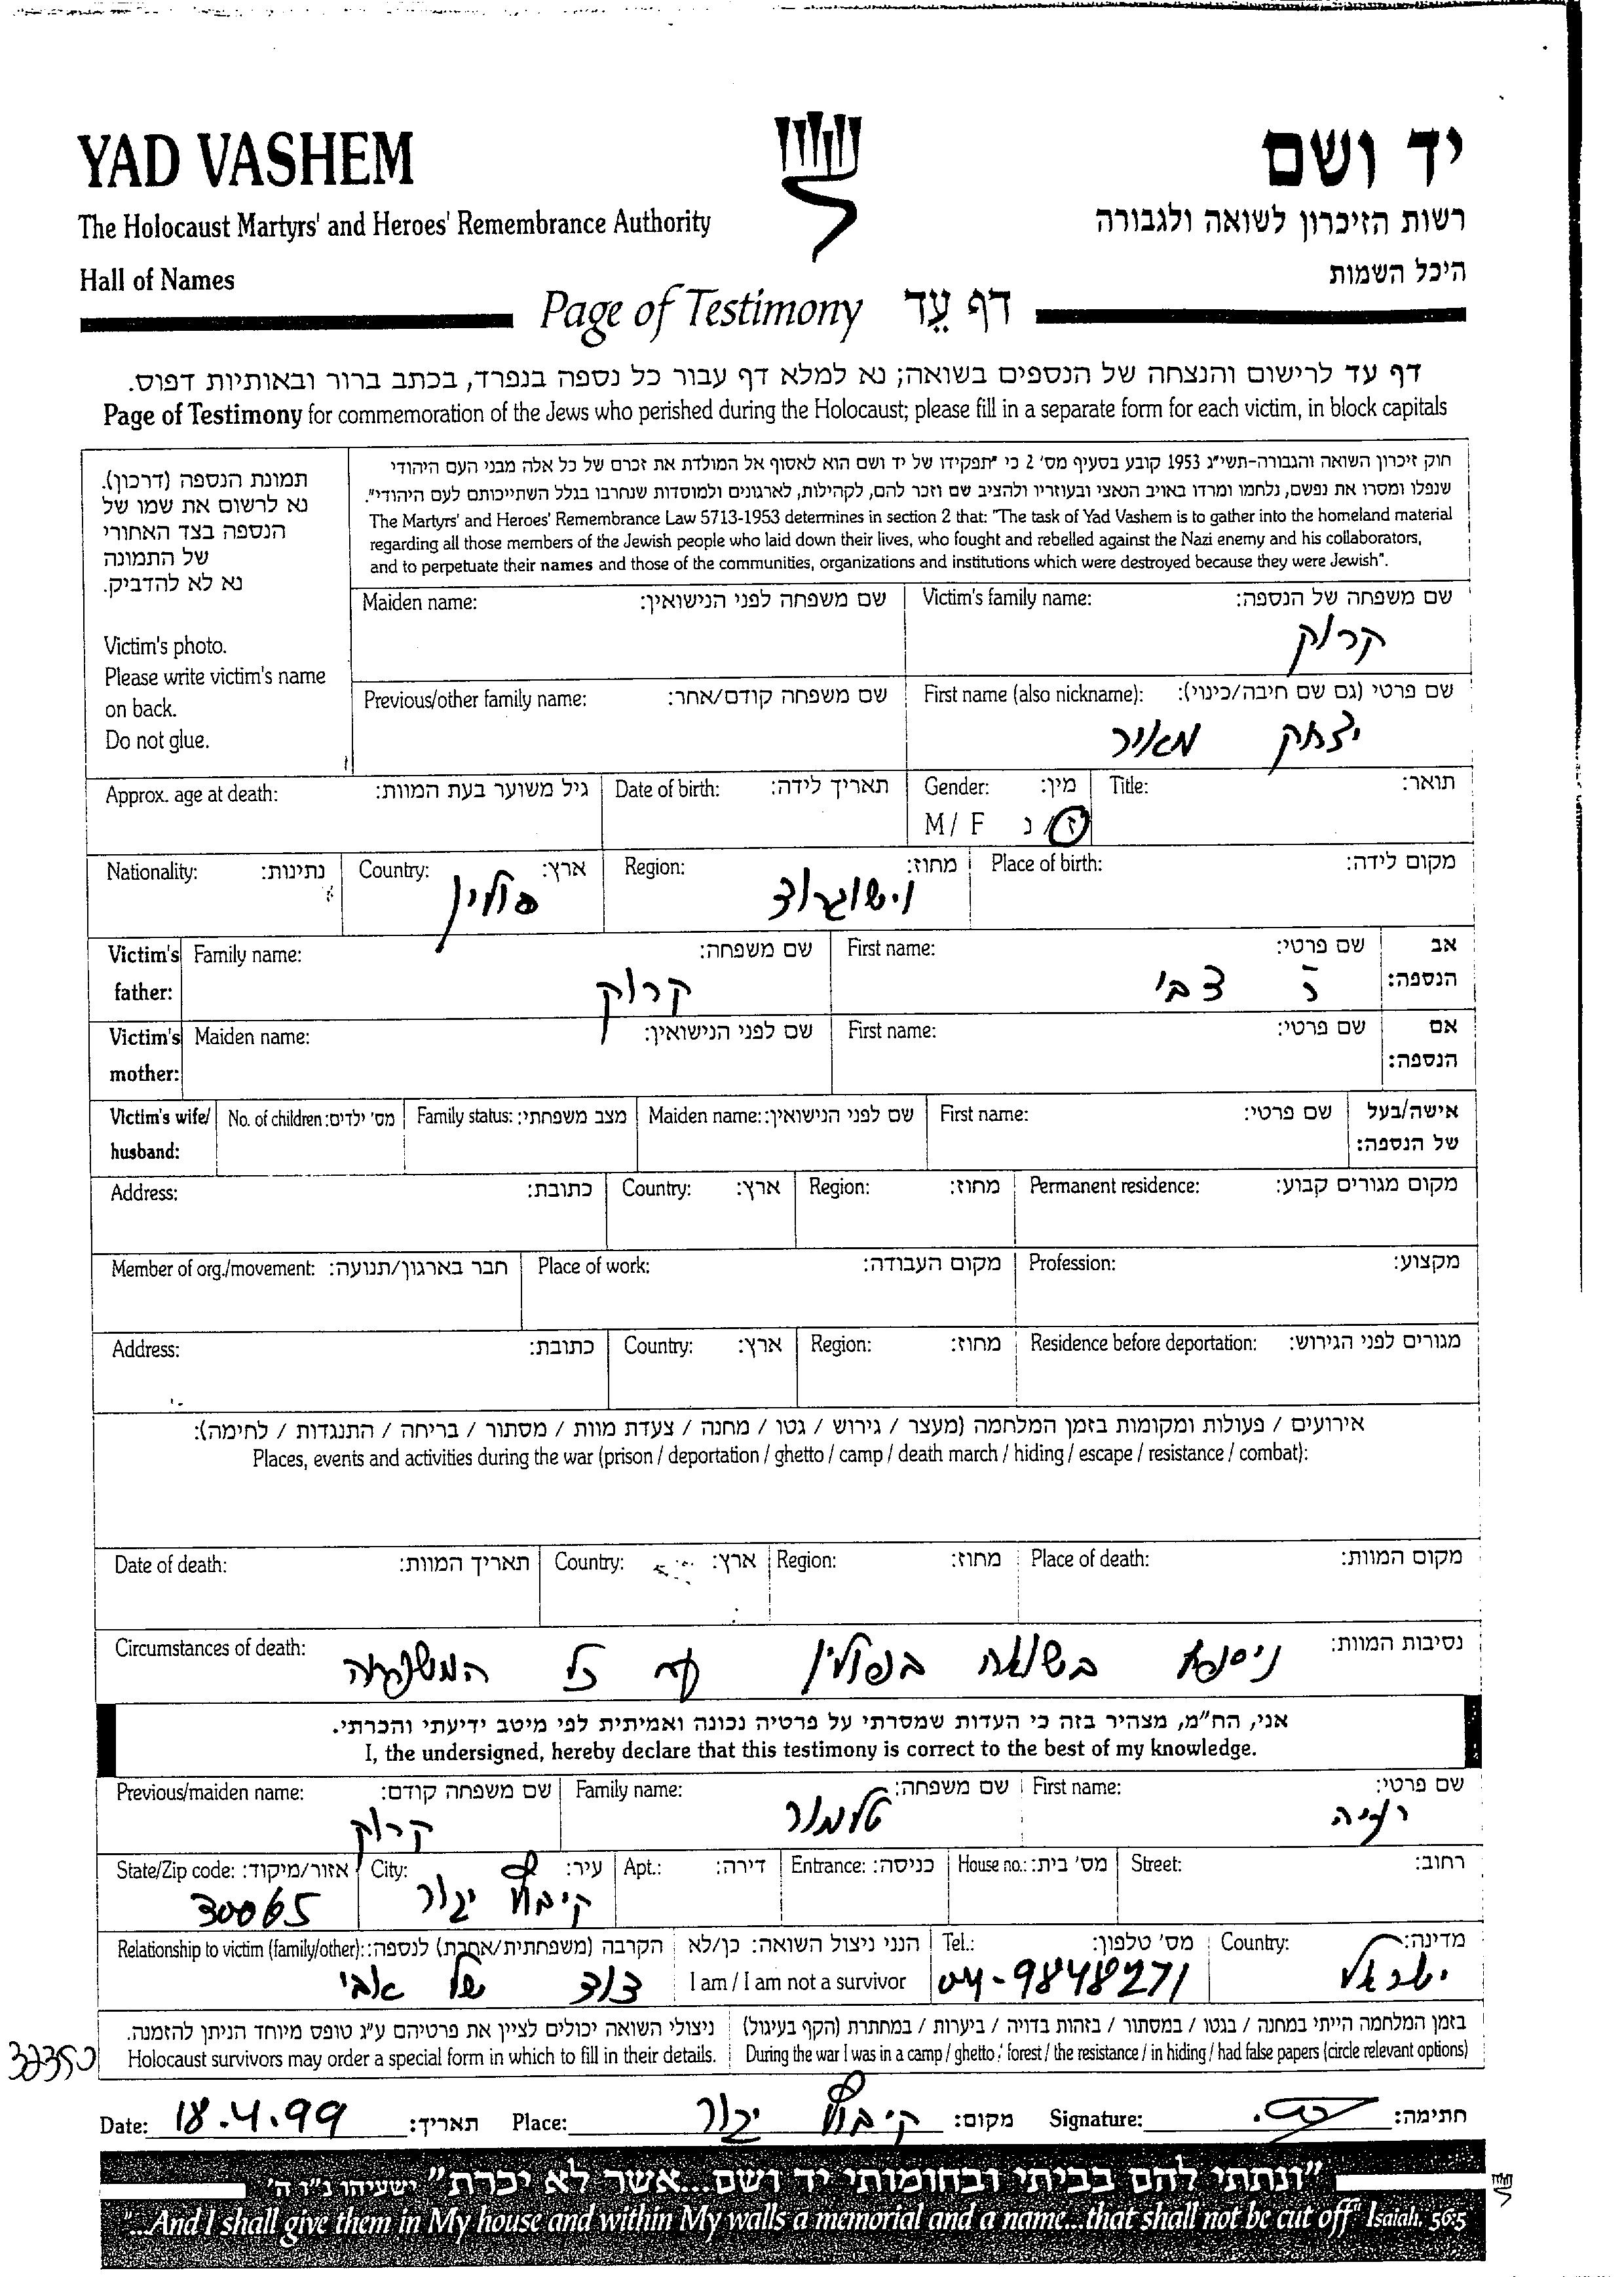 YAD VASHEM
יד ושם
The Holocaust Martyrs' and Heroes' Remembrance Authority
רשות הזיכרון לשואה ולגבורה
Hall of Names
היכל השמות
Page of Testimony דף עֵד
דף עד לרישום והנצחה של הנספים בשואה; נא למלא דף עבור כל נספה בנפרד, בכתב ברור ובאותיות דפוס.
Page of Testimony for commemoration of the Jews who perished during the Holocaust; please fill in a separate form for each victim, in block capitals
תמונת הנספה (דרכון).
נא לרשום את שמו של
הנספה בצד האחורי
של התמונה
נא לא להדביק.
Victim's photo.
Please write victim's name
on back.
Do not glue.
חוק זיכרון השואה והגבורה-תשי"ג 1953 קובע בסעיף מס' 2 כי "תפקידו של יד ושם הוא לאסוף אל המולדת את זכרם של כל אלה מבני העם היהודי
שנפלו ומסרו את נפשם, נלחמו ומרדו באויב הנאצי ובעוזריו ולהציב שם וזכר להם, לקהילות, לארגונים ולמוסדות שנחרבו בגלל השתייכותם לעם היהודי".
The Martyrs' and Heroes' Remembrance Law 5713-1953 determines in section 2 that: "The task of Yad Vashem is to gather into the homeland material
regarding all those members of the Jewish people who laid down their lives, who fought and rebelled against the Nazi enemy and his collaborators,
and to perpetuate their names and those of the communities, organizations and institutions which were destroyed because they were Jewish".
Maiden name: שם משפחה לפני הנישואין: Victim's family name: שם משפחה של הנספה:
קרוק
Previous/other family name: שם משפחה קודם/אחר: First name (also nickname): שם פרטי (גם שם חיבה/כינוי):
יצחק מאיר
Approx. age at death: גיל משוער בעת המוות: Date of birth: תאריך לידה: Gender: מין: Title: תואר:
M / F ז/נ
Nationality: נתינות: Country: ארץ: Region: מחוז: Place of birth: מקום לידה:
פולין וישוגרוד
Victim's father: Family name: שם משפחה: First name: שם פרטי: אב הנספה:
קרוק ר' צבי
Victim's mother: Maiden name: שם לפני הנישואין: First name: שם פרטי: אם הנספה:
Victim's wife/ husband: No. of children: מס' ילדים: Family status: מצב משפחתי: Maiden name: שם לפני הנישואין: First name: שם פרטי: אישה/בעל של הנספה:
Address: כתובת: Country: ארץ: Region: מחוז: Permanent residence: מקום מגורים קבוע:
Member of org./movement: חבר בארגון/תנועה: Place of work: מקום העבודה: Profession: מקצוע:
Address: כתובת: Country: ארץ: Region: מחוז: Residence before deportation: מגורים לפני הגירוש:
אירועים / פעולות ומקומות בזמן המלחמה (מעצר / גירוש / גטו / מחנה / צעדת מוות / מסתור / בריחה / התנגדות / לחימה):
Places, events and activities during the war (prison / deportation / ghetto / camp / death march / hiding / escape / resistance / combat):
Date of death: תאריך המוות: Country: ארץ: Region: מחוז: Place of death: מקום המוות:
Circumstances of death: נסיבות המוות:
ניספה בשואה בפולין עם כל המשפחה
אני, הח"מ, מצהיר בזה כי העדות שמסרתי על פרטיה נכונה ואמיתית לפי מיטב ידיעתי והכרתי.
I, the undersigned, hereby declare that this testimony is correct to the best of my knowledge.
Previous/maiden name: שם משפחה קודם: Family name: שם משפחה: First name: שם פרטי:
קרוק טלמור
State/Zip code: אזור/מיקוד: City: עיר: Apt.: דירה: Entrance: כניסה: House no.: מס' בית: Street: רחוב:
30065 קיבוץ יגור
Relationship to victim (family/other): הקרבה (משפחתית/אחרת) לנספה: הנני ניצול השואה: כן/לא Tel.: מס' טלפון: Country: מדינה:
דוד של אבי I am / I am not a survivor 04-9848271 ישראל
ניצולי השואה יכולים לציין את פרטיהם ע"ג טופס מיוחד הניתן להזמנה. בזמן המלחמה הייתי במחנה / בגטו / במסתור / בזהות בדויה / ביערות / במחתרת (הקף בעיגול)
Holocaust survivors may order a special form in which to fill in their details. During the war I was in a camp / ghetto / forest / the resistance / in hiding / had false papers (circle relevant options)
Date: 18.4.99 תאריך: Place: קיבוץ יגור מקום: Signature: חתימה:
"ונתתי להם בביתי ובחומותי יד ושם...אשר לא יכרת" ישעיהו נ"ו ה'
"...And I shall give them in My house and within My walls a memorial and a name...that shall not be cut off" Isaiah, 56:5